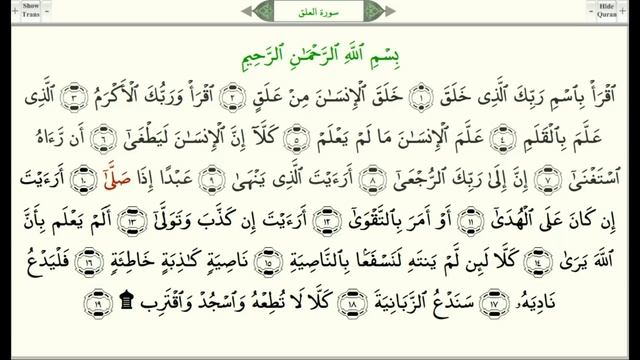 + Show Trans - سورة العلق - Hide Quran +
بِسْمِ ٱللَّهِ ٱلرَّحْمَـٰنِ ٱلرَّحِيمِ
ٱقْرَأْ بِٱسْمِ رَبِّكَ ٱلَّذِى خَلَقَ ۝١ خَلَقَ ٱلْإِنسَـٰنَ مِنْ عَلَقٍ ۝٢ ٱقْرَأْ وَرَبُّكَ ٱلْأَكْرَمُ ۝٣ ٱلَّذِى
عَلَّمَ بِٱلْقَلَمِ ۝٤ عَلَّمَ ٱلْإِنسَـٰنَ مَا لَمْ يَعْلَمْ ۝٥ كَلَّآ إِنَّ ٱلْإِنسَـٰنَ لَيَطْغَىٰٓ ۝٦ أَن رَّءَاهُ
ٱسْتَغْنَىٰٓ ۝٧ إِنَّ إِلَىٰ رَبِّكَ ٱلرُّجْعَىٰٓ ۝٨ أَرَءَيْتَ ٱلَّذِى يَنْهَىٰ ۝٩ عَبْدًا إِذَا صَلَّىٰٓ ۝١٠ أَرَءَيْتَ
إِن كَانَ عَلَى ٱلْهُدَىٰٓ ۝١١ أَوْ أَمَرَ بِٱلتَّقْوَىٰٓ ۝١٢ أَرَءَيْتَ إِن كَذَّبَ وَتَوَلَّىٰٓ ۝١٣ أَلَمْ يَعْلَم بِأَنَّ
ٱللَّهَ يَرَىٰ ۝١٤ كَلَّا لَئِن لَّمْ يَنتَهِ لَنَسْفَعًۢا بِٱلنَّاصِيَةِ ۝١٥ نَاصِيَةٍ كَـٰذِبَةٍ خَاطِئَةٍ ۝١٦ فَلْيَدْعُ
نَادِيَهُۥ ۝١٧ سَنَدْعُ ٱلزَّبَانِيَةَ ۝١٨ كَلَّا لَا تُطِعْهُ وَٱسْجُدْ وَٱقْتَرِب ۩ ۝١٩